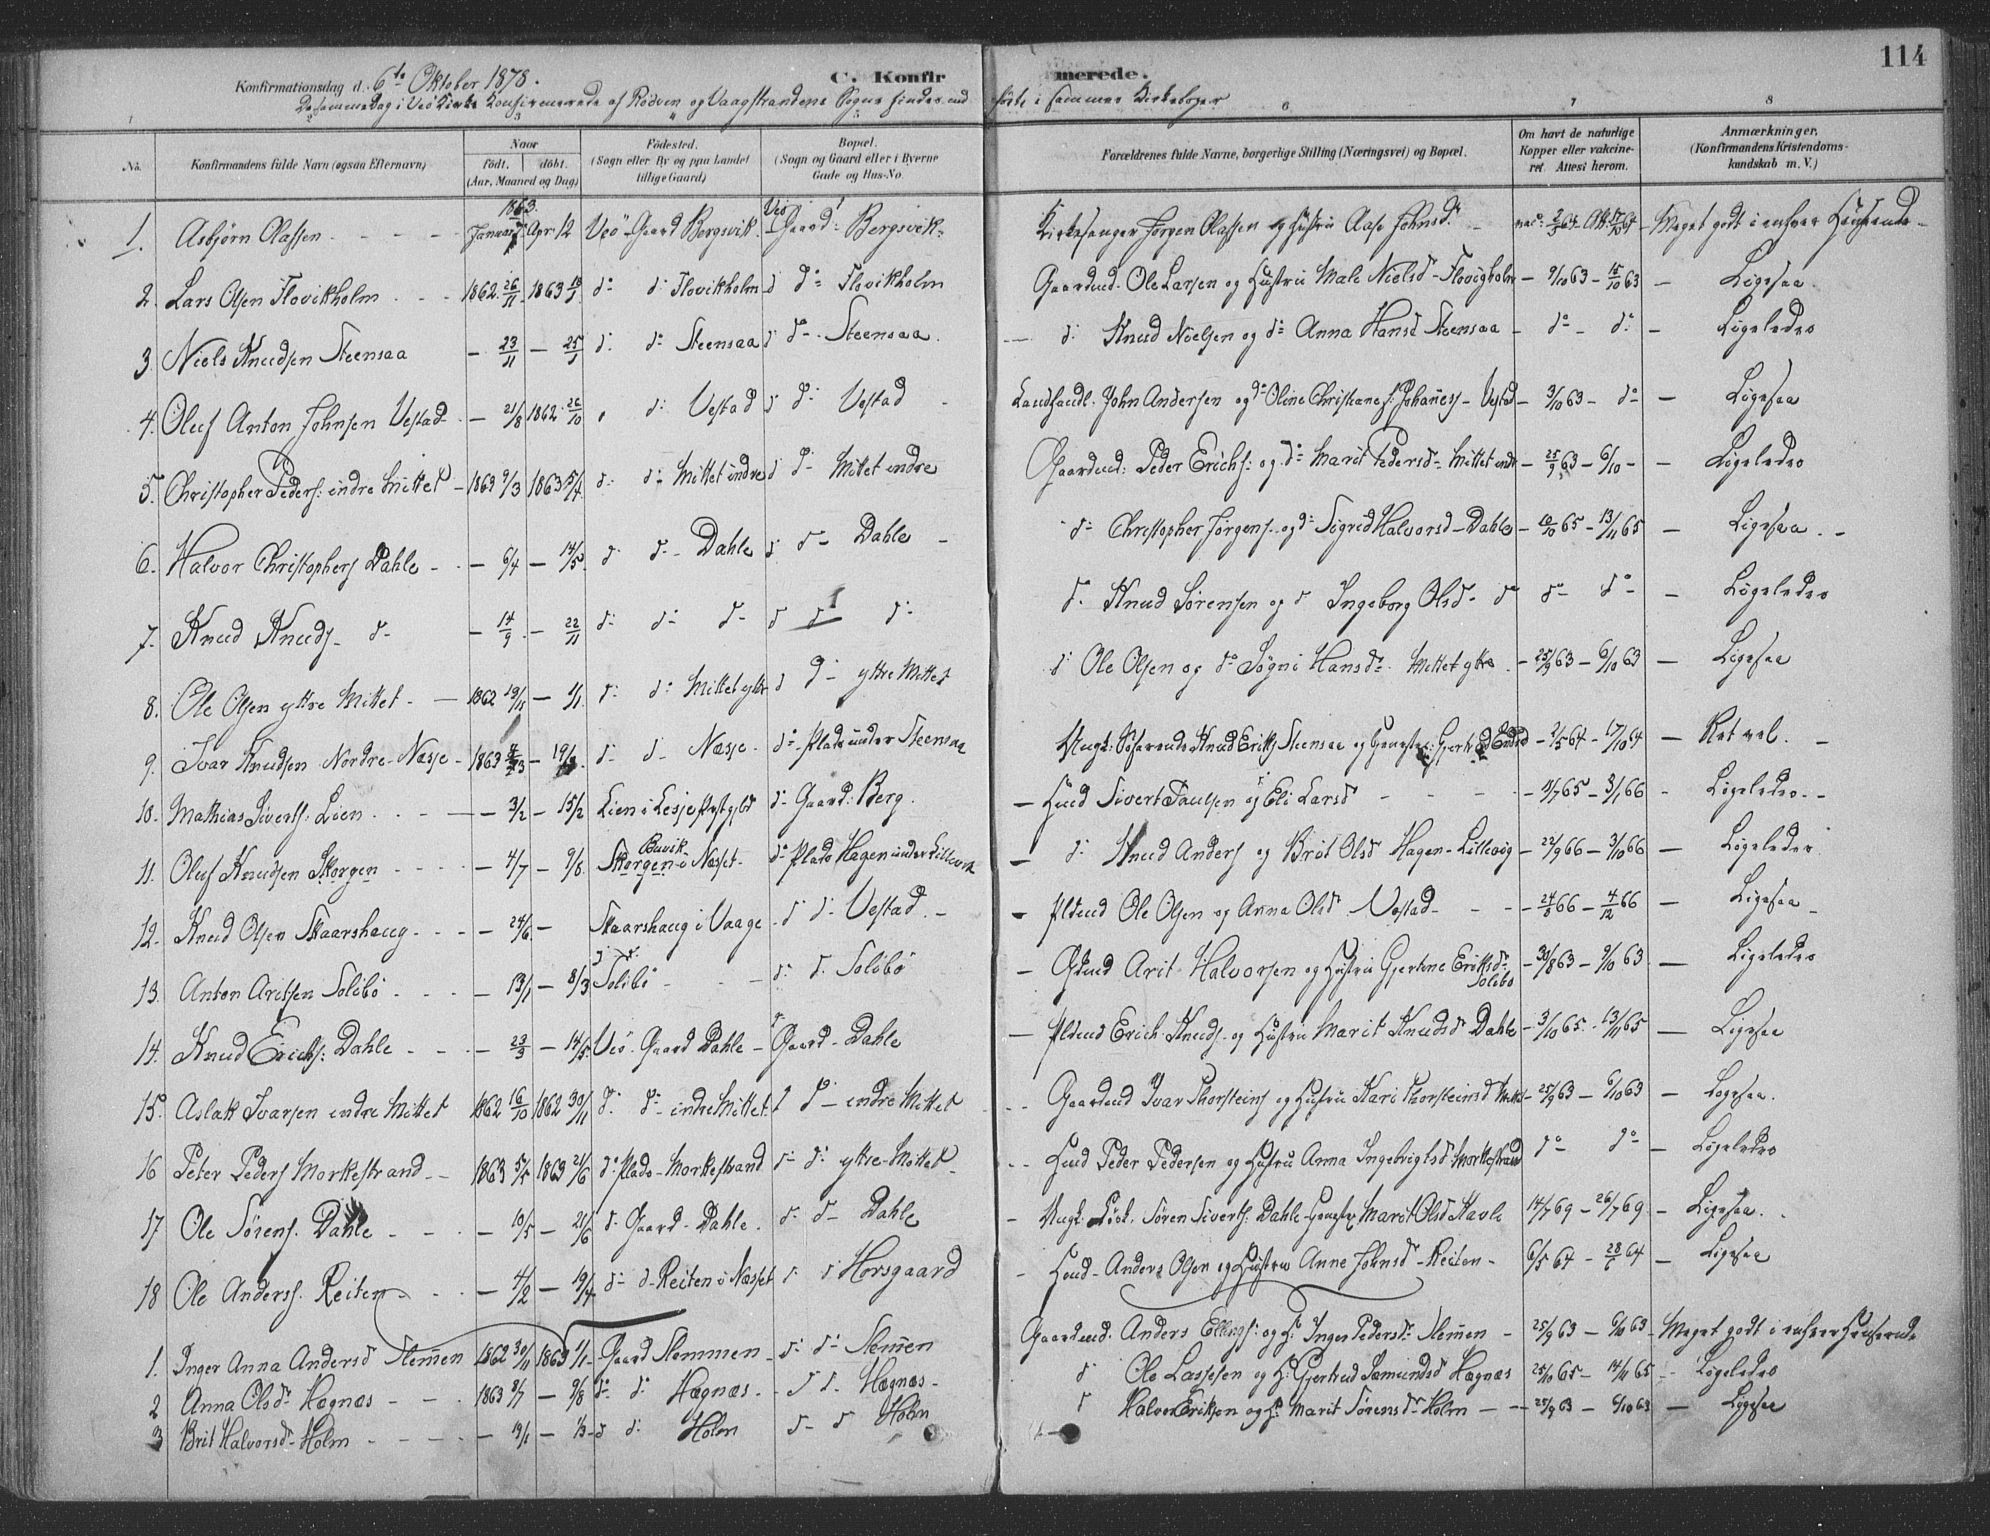 114
C. Konfirmerede.
Konfirmationsdag d. 6te Oktober 1878.
De samme Dag i Veø Kirke Konfirmerede af Rødven og Vaagstrandens Sogne findes indførte i sammes Kirkebøger
1 2 3 4 5 6 7 8
No. | Konfirmandens fulde Navn (ogsaa Efternavn) | Naar født. døbt. (Aar, Maaned og Dag) | Fødested. (Sogn eller By og paa Landet tillige Gaard) | Bopæl. (Sogn og Gaard eller i Byerne Gade og Hus-No. | Forældrenes fulde Navne, borgerlige Stilling (Næringsvei) og Bopæl. | Om havt de naturlige Kopper eller vakcineret. Attest herom. | Anmærkninger. (Konfirmandens Kristendomskundskab m. V.)
1. Asbjørn Olassen - 1863 Januar 7 Apr 12 Veø Gaard Bergsvik Veø Gaard Bergsvik Kirkesanger Jørgen Olassen og Hustru Aase Johnsd. Meget godt i enhver Henseende
2. Lars Olsen Flovikholm 1862 26/11 1863 18/1 do do Flovikholm do do Flovikholm Gaardmd. Ole Larsen og Hustru Male Nielsd. Flovigholm - 9/10 63 - 15/10 63 - Ligesaa
3. Niels Knudsen Steensaa - 23/11 - 25/1 do do Steensaa do do Steensaa - do Knud Nielsen og do Anna Hansd Steensaa - do - do - Ligeledes
4. Oluf Anton Johnsen Vestad - 21/8 1862 26/10 do Vestad do do Vestad Landhandl. John Andersen og do Oline Christiane f. Johanes. - Vestad - 3/10 63 - do - Ligesaa
5. Christopher Peders: indre Mittet - 1863 9/3 1863 5/4 do do Mittet indre do do Mittet indre Gaardmd: Peder Erichs: og do Marit Pedersd. Mittet indr - 25/9 63 - 6/10 - - Ligeledes
6. Halvor Christophers Dahle - 6/4 - 14/5 do do Dahle do do Dahle do Christopher Jørgens. og do Sigrid Halvorsd - Dahle - 10/10 65 - 13/11 65 - Ligesaa
7. Knud Knuds. do - 14/9 - 22/11 do do do do do do do Knud Sørensen og do Ingeborg Olsd. do do do - Ligeledes
8. Ole Olsen yttre Mittet - 1862 19/11 - 1/1 do do Mittet yttr do do yttre Mittet do Ole Olsen og do Søgni Hansd. Mittet yttre - 25/9 63 - 6/10 63 - Ligesaa
9. Ivar Knudsen Nordre-Næsje - 1863 - 19/ do do Næsje. do Plads under Steensaa Ungk: Søfarende Knud Eriks. Steensaa og - 2/5 64 - 17/10 64 - Ret vel.
10. Mathias Siverts. Lien - 3/2 - 15/2 Lien i Lesje Præstgjæld do Gaard: Berg. - Hmd Sivert Paulsen og Eli Larsd - 11/7 65 - 3/1 66 - Ligeledes
11. Oluf Knudsen Skorgen - 4/7 - 9/8 Buvik Skorgen i Næsset do Plads Hagen under Lillevik - do Knud Anders. og Brit Olsd Hagen - Lillevig - 22/9 66 - 3/10 66 - Ligeledes
12. Knud Olsen Skaarshaug - 24/6 - Skaarshaug i Vaage do do Vestad - Pldsmd Ole Olsen og Anna Olsd Vestad - 24/8 66 - 4/12 66 - Ligesaa
13. Anton Aritsen Solibø - 13/1 - 8/3 Solibø do do Solibø - Gdmd Arit Halvorsen og Hustru Gjertine Eriksd. Solibø - 30/8 63 - 9/10 63 - Ligeledes
14. Knud Erichs: Dahle - 23/3 - 14/5 Veø Gaard Dahle - Gaard Dahle - Pldmd Erich Knuds. og Hustru Marit Knudsd Dahle - 3/10 65 - 13/11 65 - Ligesaa
15. Aslak Ivarsen indre Mittet 1862 16/10 1862 30/11 do do indre Mittet do do indre Mittet Gaardmd Ivar Thorsteins og Hustru Kari Thorsteinsd Mittet - 25/9 63 - 6/10 63 - Ligesaa.
16 Peter Peders Morkestrand - 1863 5/5 1863 21/6 do Plads-Morkestrand do do yttre-Mittet - Hmd Peder Pedersen og Hustru Anna Ingebrigtsd Morkestrand do do - Ligeledes
17 Ole Sørens. Dahle - 10/5 - 21/6 do Gaard-Dahle. do do Dahle - Ungk. Søren Siverts: Dahle Marit Olsd Stavli 14/7 69 - 26/7 69 - Ligesaa.
18 Ole Anders. Reiten - 4/2 - 19/4 do do Reiten i Næsset do do Horsgaard - Hmd. Anders Olsen og Hustru Anne Johnsd. Reiten - 6/5 64 - 28/6 64 - Ligesaa
1. Inger Anna Andersd Slemmen 1862 30/11 1863 1/1 Gaard Slemmen do do Slemen Gaardmd. Anders Ellings: og H. Inger Pedersd. Slemen - 25/9 63 - 6/10 63 - Meget godt i enhver Henseende
2 Anna Olsd. Hægnæs - 1863 8/7 - 9/8 do do Hægnæs. do do Hægnæs do Ole Lassesen og H. Gjertrud Sæmundsd Hægnæs 25/10 65 - 14/11 65 - Ligeledes
3 Brit Halvorsd. Holm - 19/1 - 1/3 do do Holm do do Holm do Halvor Eriksen og H. Marit Sørensd. Holm - 25/9 63 - 6/10 63 - Ligesaa